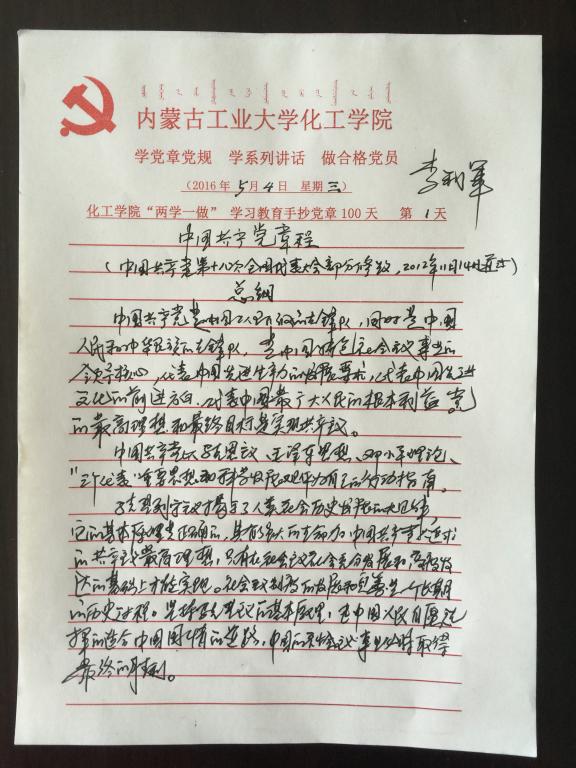 内蒙古工业大学化工学院
学党章党规 学系列讲话 做合格党员
李利军
(2016年5月4日 星期三)
化工学院“两学一做” 学习教育手抄党章100天 第1天
中国共产党章程
(中国共产党第十八次全国代表大会部分修改,2012年11月14日通过)
总纲
中国共产党是中国工人阶级的先锋队,同时是中国
人民和中华民族的先锋队,是中国特色社会主义事业的
领导核心,代表中国先进生产力的发展要求,代表中国先进
文化的前进方向,代表中国最广大人民的根本利益。党
的最高理想和最终目标是实现共产主义。
中国共产党以马克思列宁主义、毛泽东思想、邓小平理论、
“三个代表”重要思想和科学发展观作为自己的行动指南。
马克思列宁主义揭示了人类社会历史发展的规律,
它的基本原理是正确的,具有强大的生命力。中国共产党人追求
的共产主义最高理想,只有在社会主义社会充分发展和高度发
达的基础上才能实现。社会主义制度的发展和完善是一个长期
的历史过程。坚持马克思列宁主义的基本原理,走中国人民自愿选
择的适合中国国情的道路,中国的社会主义事业必将取得
最终的胜利。